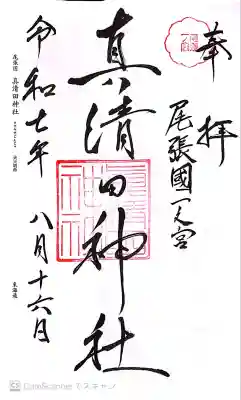 奉拝
尾張國一之宮
真清田神社
令和七年
八月十六日
尾張国 真清田神社
東海道
CamScanner でスキャン